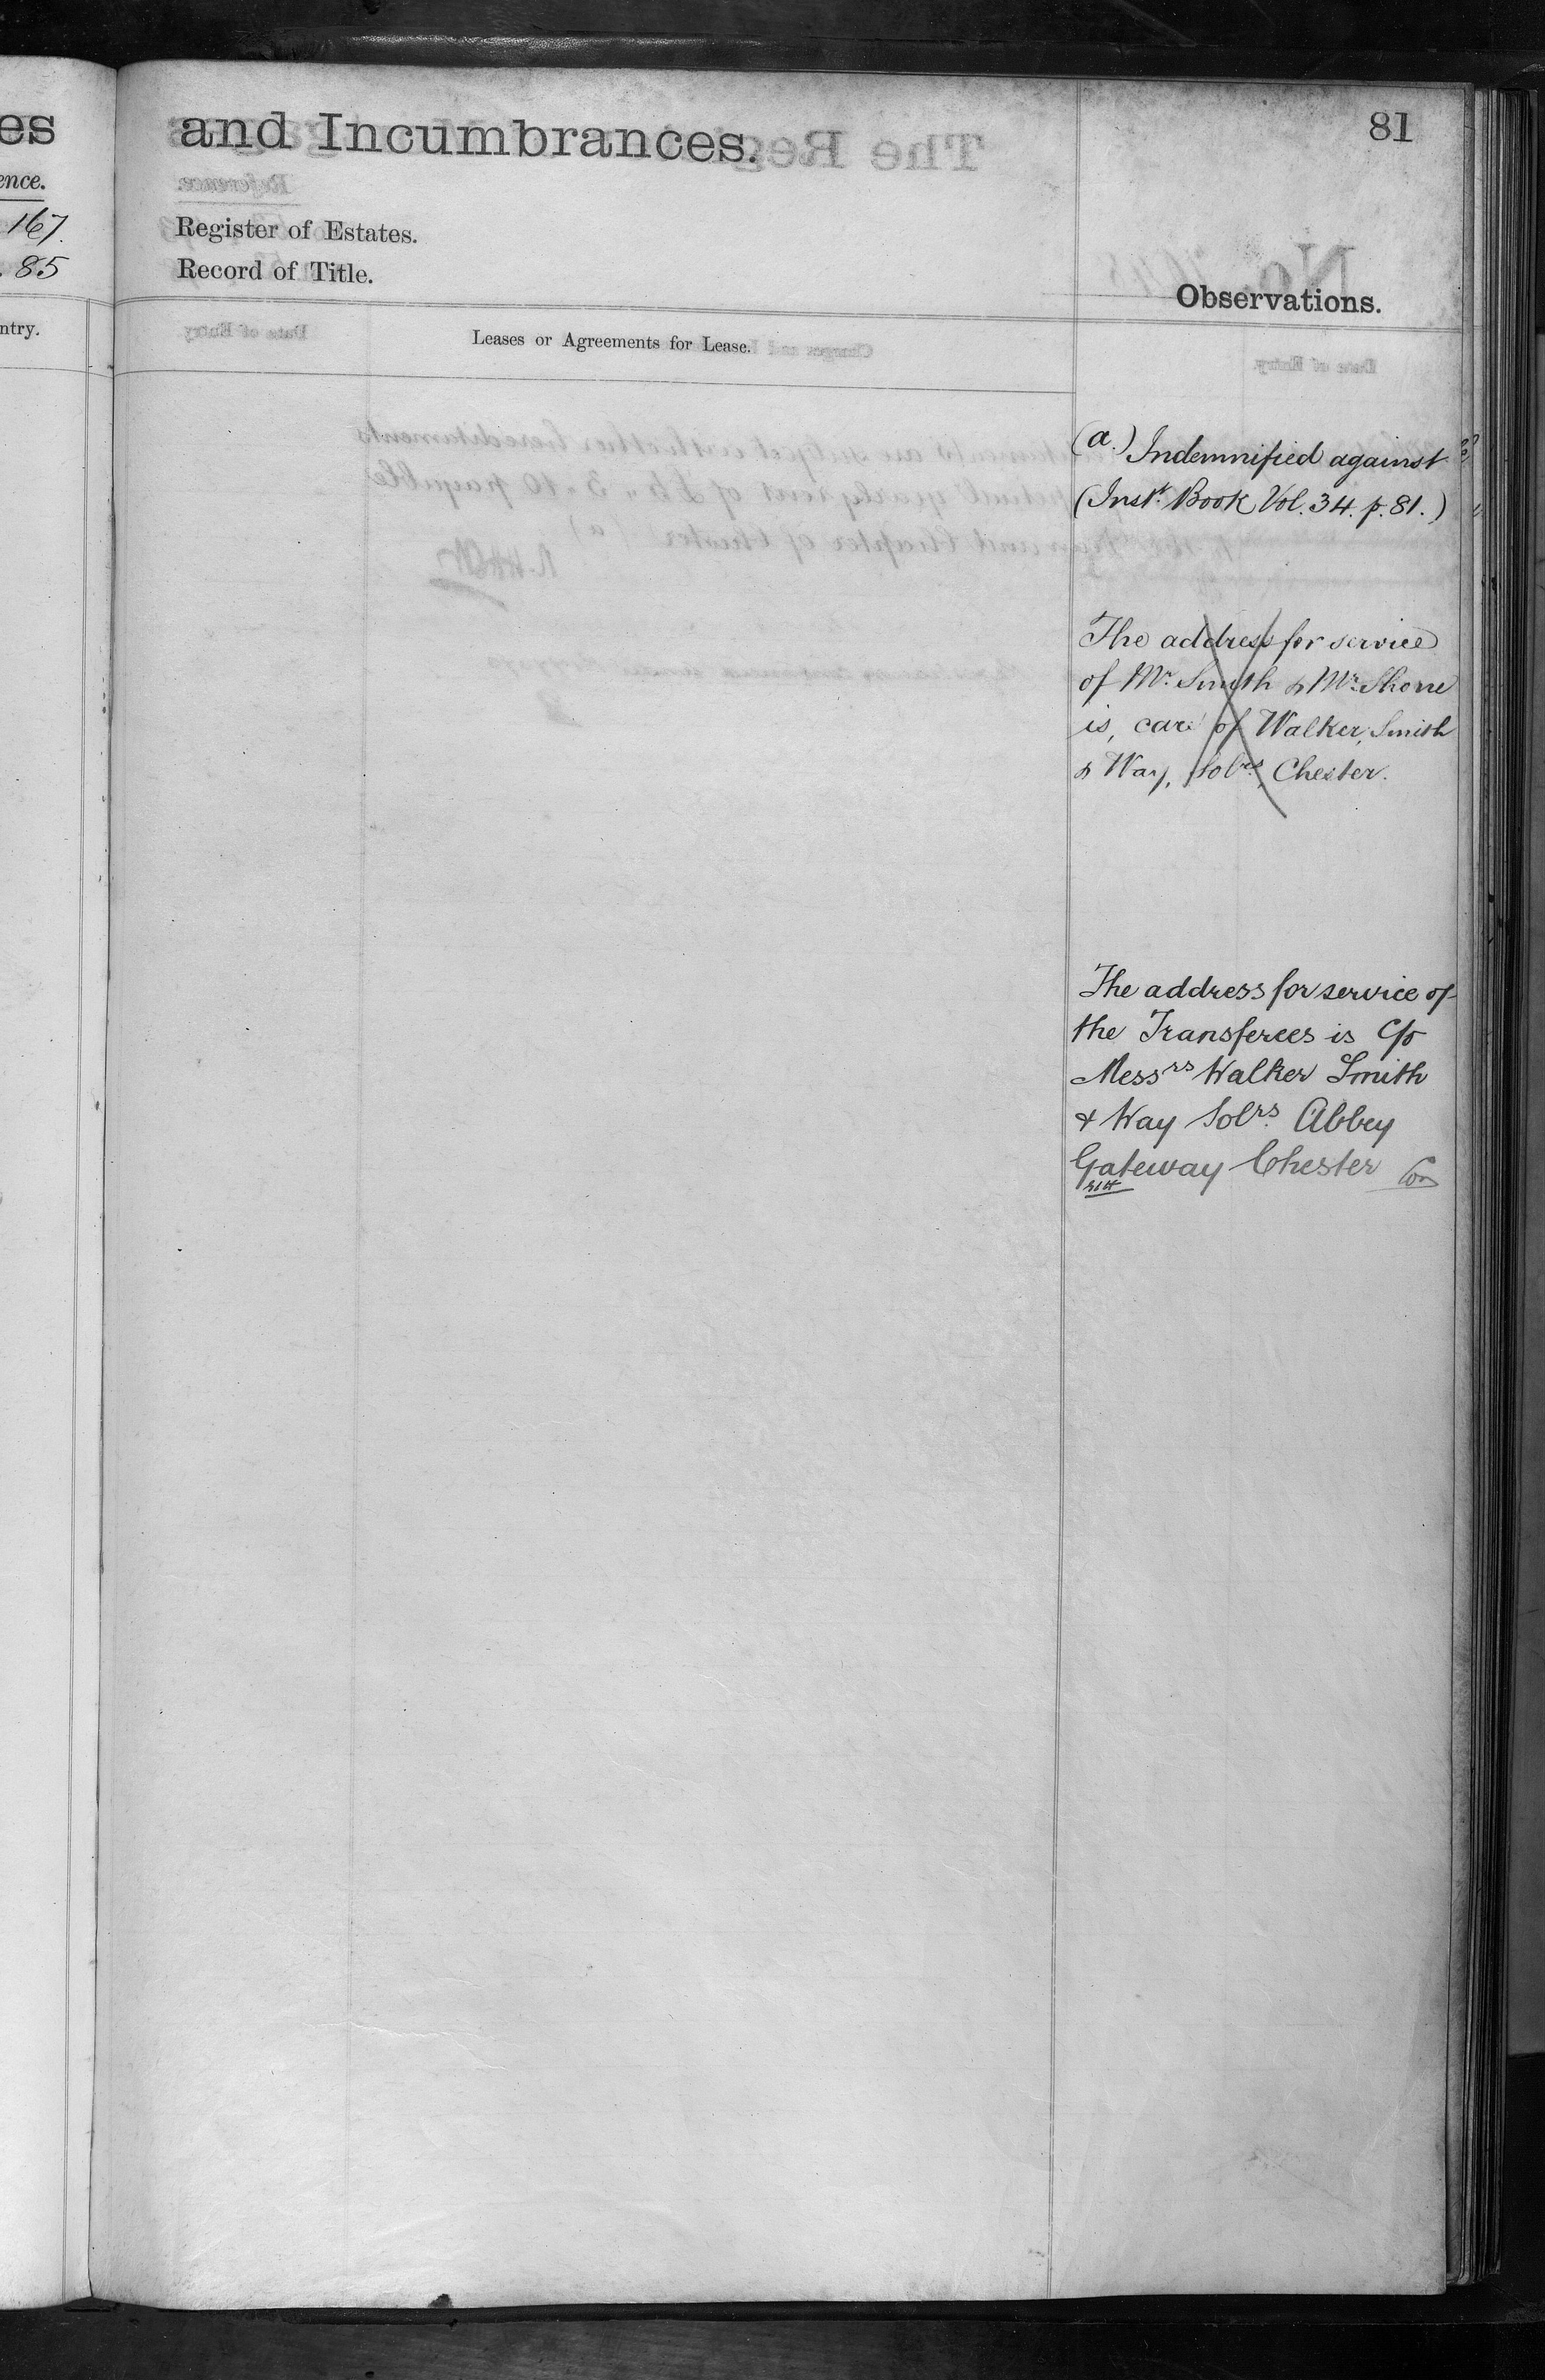 es
ence.
167.
. 85
ntry.
and Incumbrances.
81
Register of Estates.
Record of Title.
Observations.
Leases or Agreements for Lease.
(a.) Indemnified against
(Instt. Book Vol. 34. p. 81.)
The address for service
of Mr. Smith & Mr. Shone
is, care of Walker, Smith
& Way, Solrs, Chester.
The address for service of
the Transferees is C/o
Messrs Walker Smith
& Way Solrs. Abbey
Gateway Chester